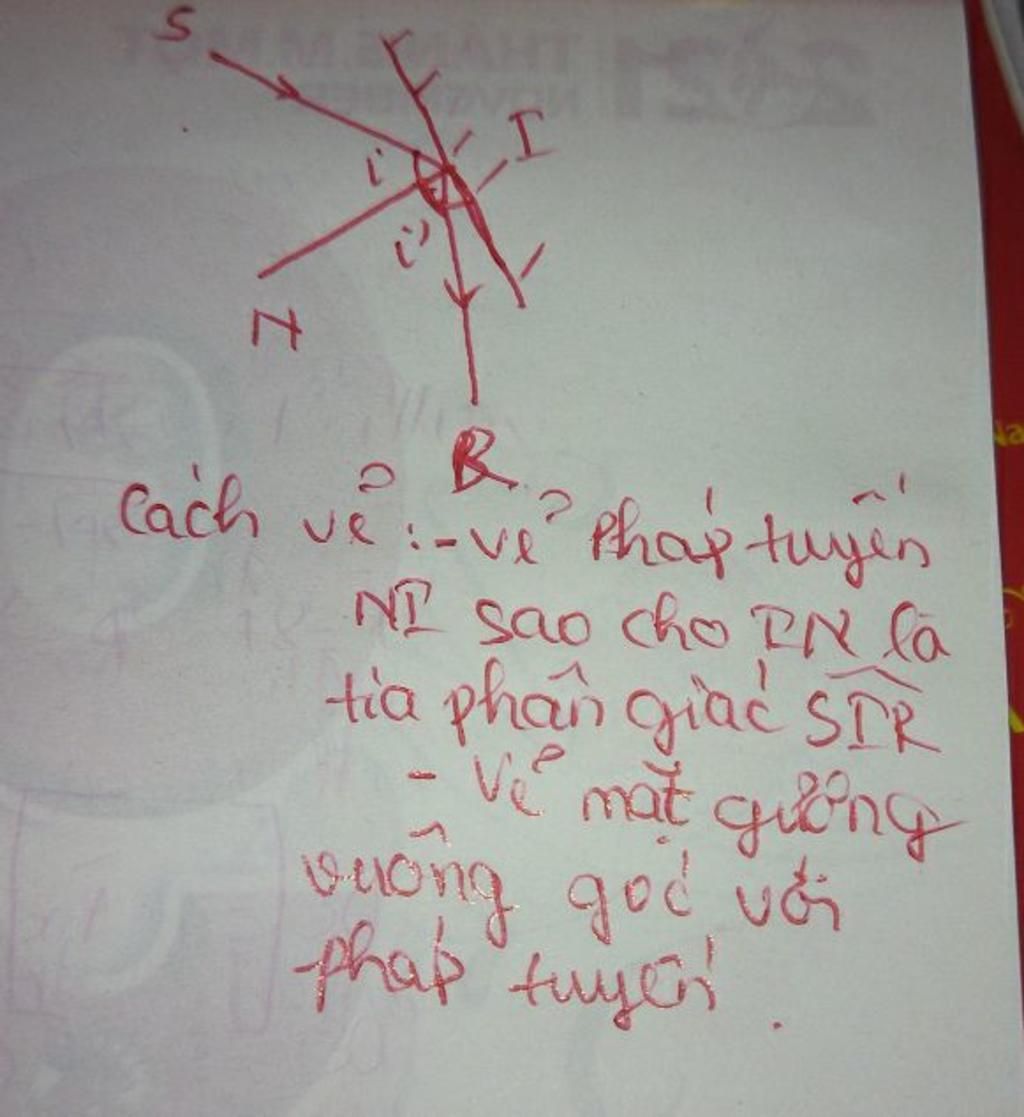 S
I
i
i'
N
R
Cách vẽ: - vẽ Pháp tuyến
NI sao cho IN là
tia phân giác SIR
- Vẽ mặt gương
vuông góc với
pháp tuyến.
Na